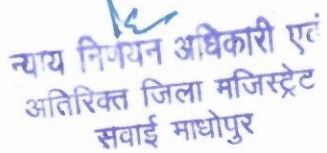 न्याय निर्णयन अधिकारी एवं
अतिरिक्त जिला मजिस्ट्रेट
सवाई माधोपुर